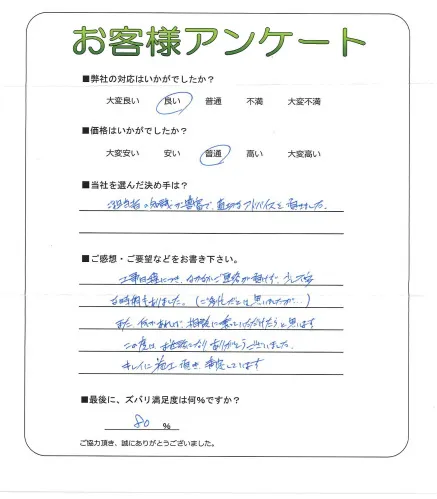 お客様アンケート
■弊社の対応はいかがでしたか?
大変良い 良い 普通 不満 大変不満
■価格はいかがでしたか?
大変安い 安い 普通 高い 大変高い
■当社を選んだ決め手は?
担当者の知識が豊富で、適切なアドバイスを頂けました。
■ご感想・ご要望などをお書き下さい。
工事日程につき、なかなかご連絡が頂けず、少し不安
な時期もありました。(ご多忙だとは思いましたが…)
また何かあれば、相談に乗っていただけたらと思います
この度は、お世話になりありがとうございました。
キレイに施工頂き、満足しています
■最後に、ズバリ満足度は何%ですか?
80 %
ご協力頂き、誠にありがとうございました。